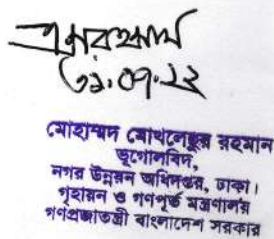 ৩১.০৭.১২
মোহাম্মদ মোখলেছুর রহমান
ভূগোলবিদ,
নগর উন্নয়ন অধিদপ্তর, ঢাকা।
গৃহায়ন ও গণপূর্ত মন্ত্রণালয়
গণপ্রজাতন্ত্রী বাংলাদেশ সরকার